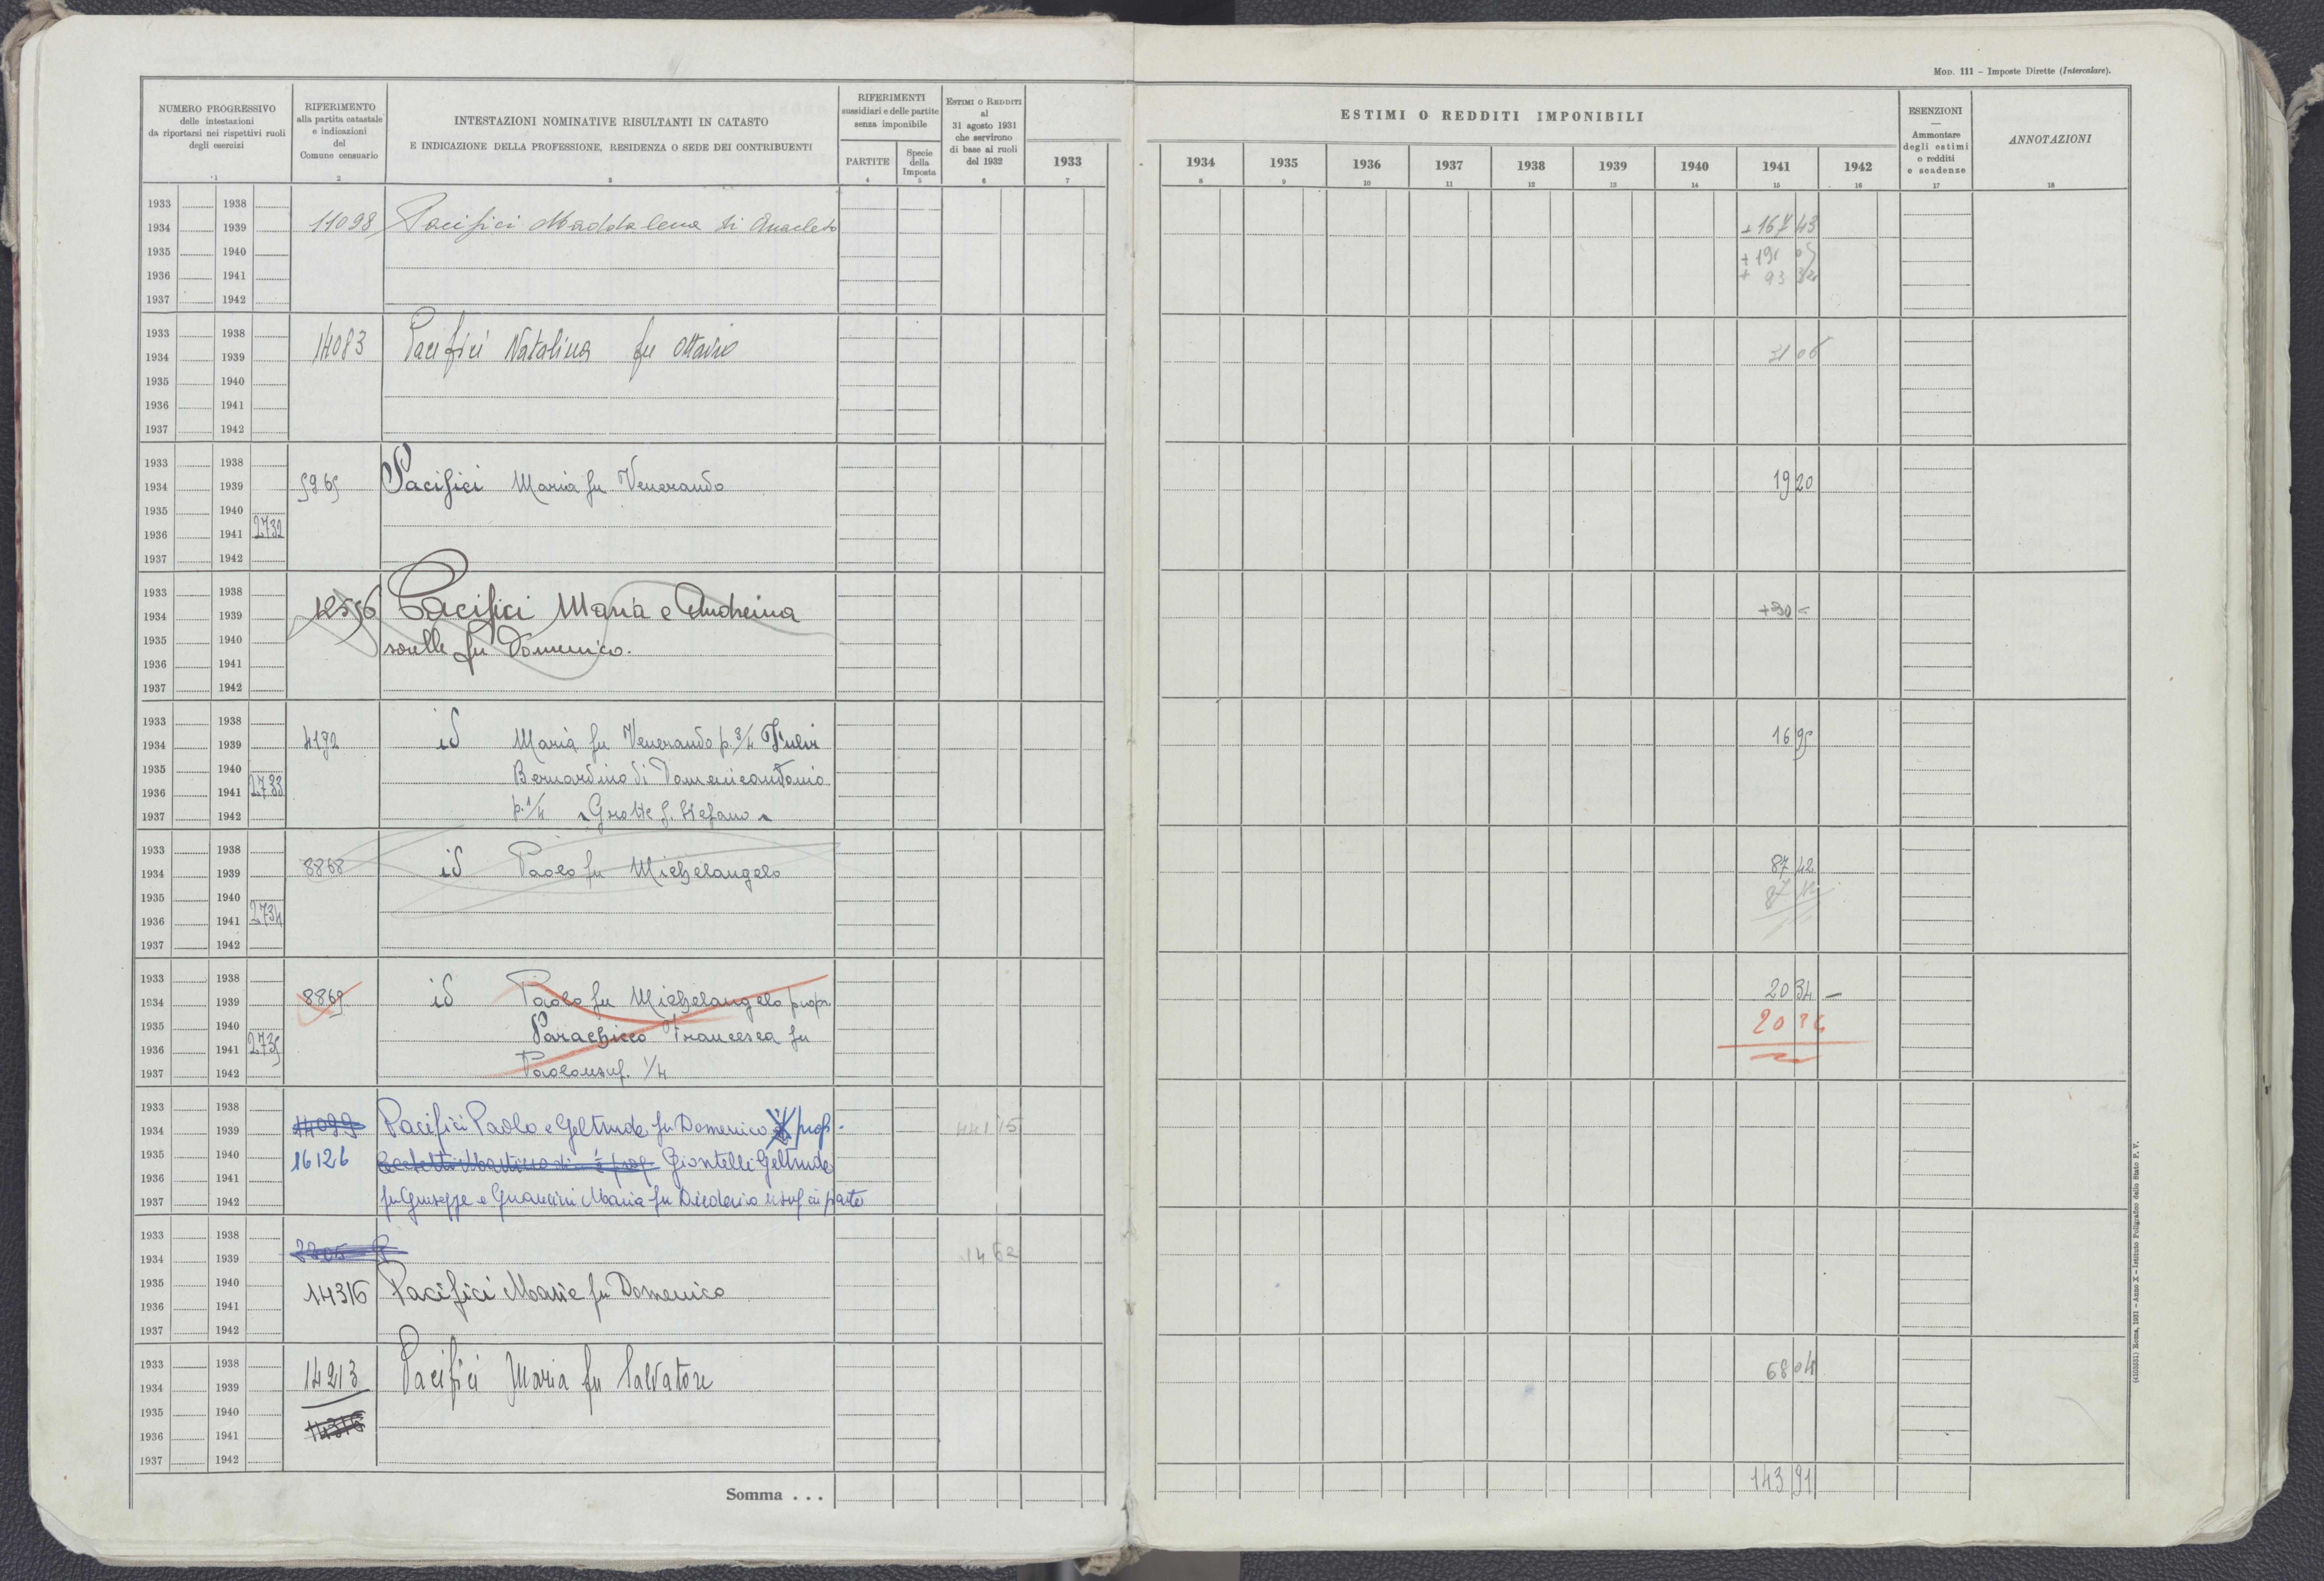 MOD. 111 – Imposte Dirette (Intercalare).
NUMERO PROGRESSIVO
delle intestazioni
da riportarsi nei rispettivi ruoli
degli esercizi
1
RIFERIMENTO
alla partita catastale
e indicazioni
del
Comune censuario
2
INTESTAZIONI NOMINATIVE RISULTANTI IN CATASTO
E INDICAZIONE DELLA PROFESSIONE, RESIDENZA O SEDE DEI CONTRIBUENTI
3
RIFERIMENTI
sussidiari e delle partite
senza imponibile
PARTITE
4
Specie
della
Imposta
5
ESTIMI O REDDITI
al
31 agosto 1931
che servirono
di base ai ruoli
del 1932
6
ESTIMI O REDDITI IMPONIBILI
1933 1934 1935 1936 1937 1938 1939 1940 1941 1942
7 8 9 10 11 12 13 14 15 16
ESENZIONI
Ammontare
degli estimi
o redditi
e scadenze
17
ANNOTAZIONI
18
1933 1938
1934 1939 11098 Pacifici Maddalena di Anacleto + 167 43
1935 1940
1936 1941 + 93 32
1937 1942
1933 1938
1934 1939 14083 Pacifici Natalina fu Ottavio 31 06
1935 1940
1936 1941
1937 1942
1933 1938
1934 1939 5965 Pacifici Maria fu Venerando 19 20
1935 1940
1936 1941 2732
1937 1942
1933 1938
1934 1939 12556 Pacifici Maria e Andreina +30 –
1935 1940 sorelle fu Domenico.
1936 1941
1937 1942
1933 1938
1934 1939 4192 id Maria fu Venerando p. 3/4 Fulvi 16 95
1935 1940 Bernardino di Domenicantonio
1936 1941 2733
1937 1942 p. 1/4 Grotte S. Stefano
1933 1938
1934 1939 8868 id Paolo fu Michelangelo 87 42
1935 1940 87 42
1936 1941 2734
1937 1942
1933 1938
1934 1939 8869 id Paolo fu Michelangelo propr 20 34 –
1935 1940 Parachicco Francesca fu 20 34
1936 1941 2735
1937 1942 Paolo usuf. 1/4
1933 1938
1934 1939 14099 Pacifici Paolo e Geltrude fu Domenico prop. 441 15
1935 1940 16126 Giontelli Geltrude
1936 1941
1937 1942 fu Giuseppe e Guancini Maria fu Diederico usuf in parte
1933 1938
1934 1939 14 62
1935 1940 14316 Pacifici Maria fu Domenico
1936 1941
1937 1942
1933 1938 14213 Pacifici Maria fu Salvatore 68 04
1934 1939
1935 1940
1936 1941 14316
1937 1942
Somma . . . 143 91
(4103531) Roma, 1931 – Anno X – Istituto Poligrafico dello Stato P. V.